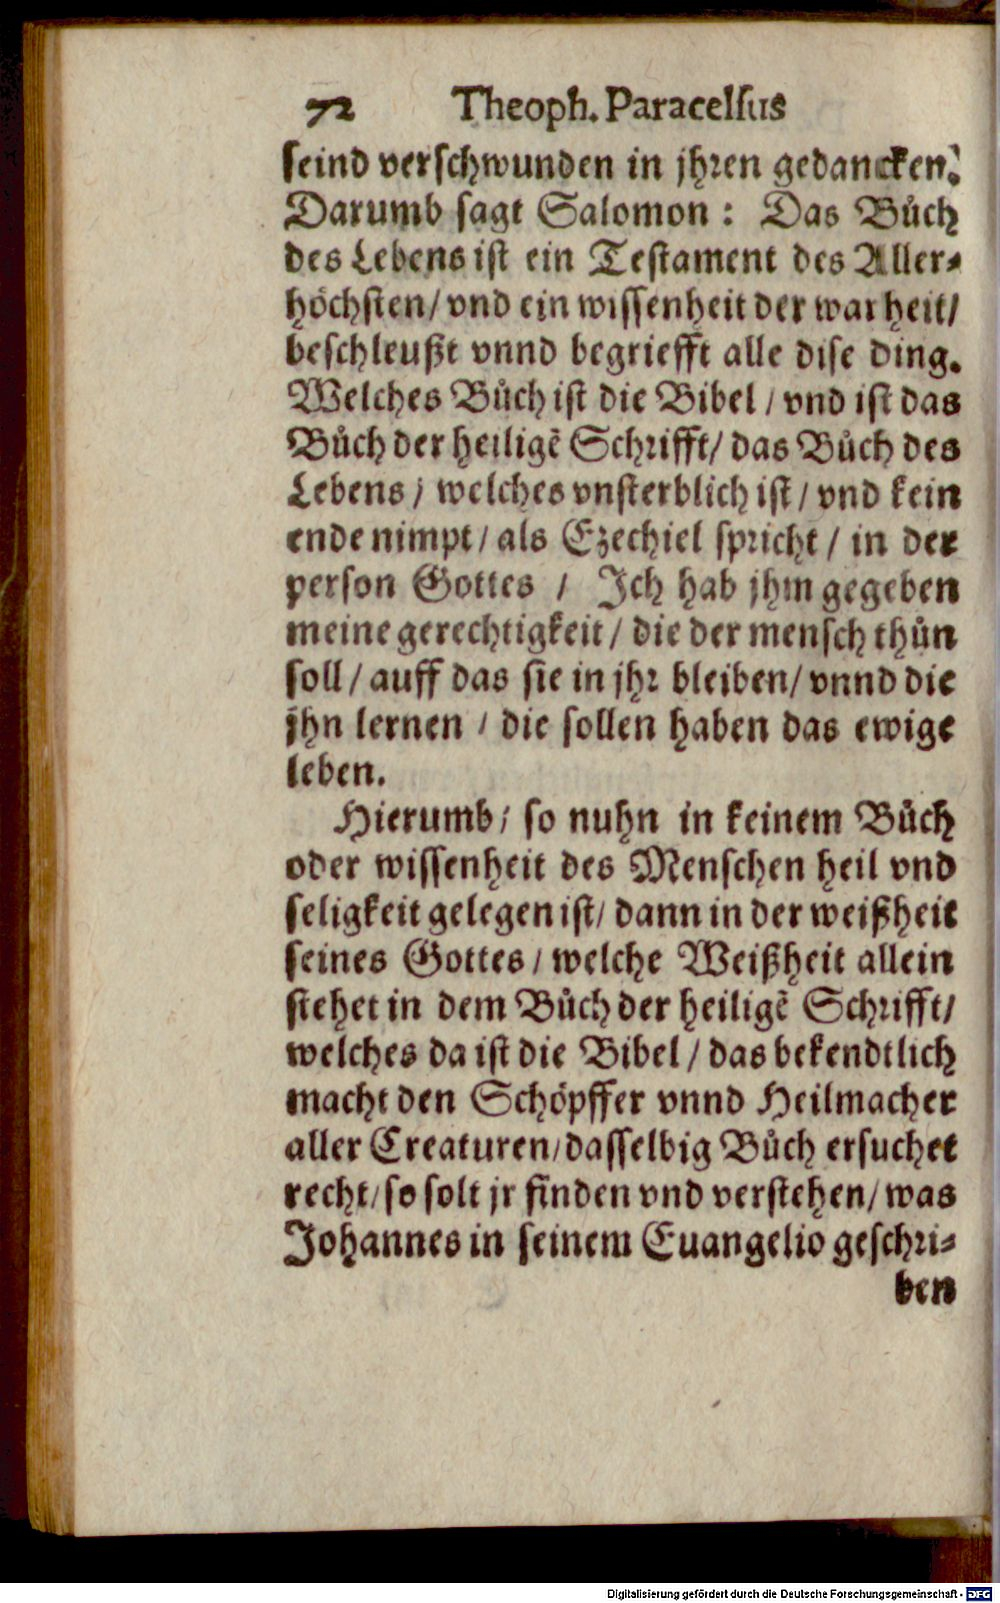 72 Theoph. Paracelsus
seind verschwunden in jhren gedancken.
Darumb sagt Salomon: Das Bůch
des Lebens ist ein Testament des Aller-
höchsten/ vnd ein wissenheit der warheit/
beschleußt vnnd begriefft alle dise ding.
Welches Bůch ist die Bibel/ vnd ist das
Bůch der heiligẽ Schrifft/ das Bůch des
Lebens/ welches vnsterblich ist/ vnd kein
ende nimpt/ als Ezechiel spricht/ in der
person Gottes / Ich hab jhm gegeben
meine gerechtigkeit/ die der mensch thůn
soll/ auff das sie in jhr bleiben/ vnnd die
jhn lernen / die sollen haben das ewige
leben.
Hierumb/ so nuhn in keinem Bůch
oder wissenheit des Menschen heil vnd
seligkeit gelegen ist/ dann in der weißheit
seines Gottes/ welche Weißheit allein
stehet in dem Bůch der heiligẽ Schrifft/
welches da ist die Bibel/ das bekendtlich
macht den Schöpffer vnnd Heilmacher
aller Creaturen/ dasselbig Bůch ersuchet
recht/ so solt jr finden vnd verstehen/ was
Johannes in seinem Euangelio geschri-
ben
Digitalisierung gefördert durch die Deutsche Forschungsgemeinschaft - DFG